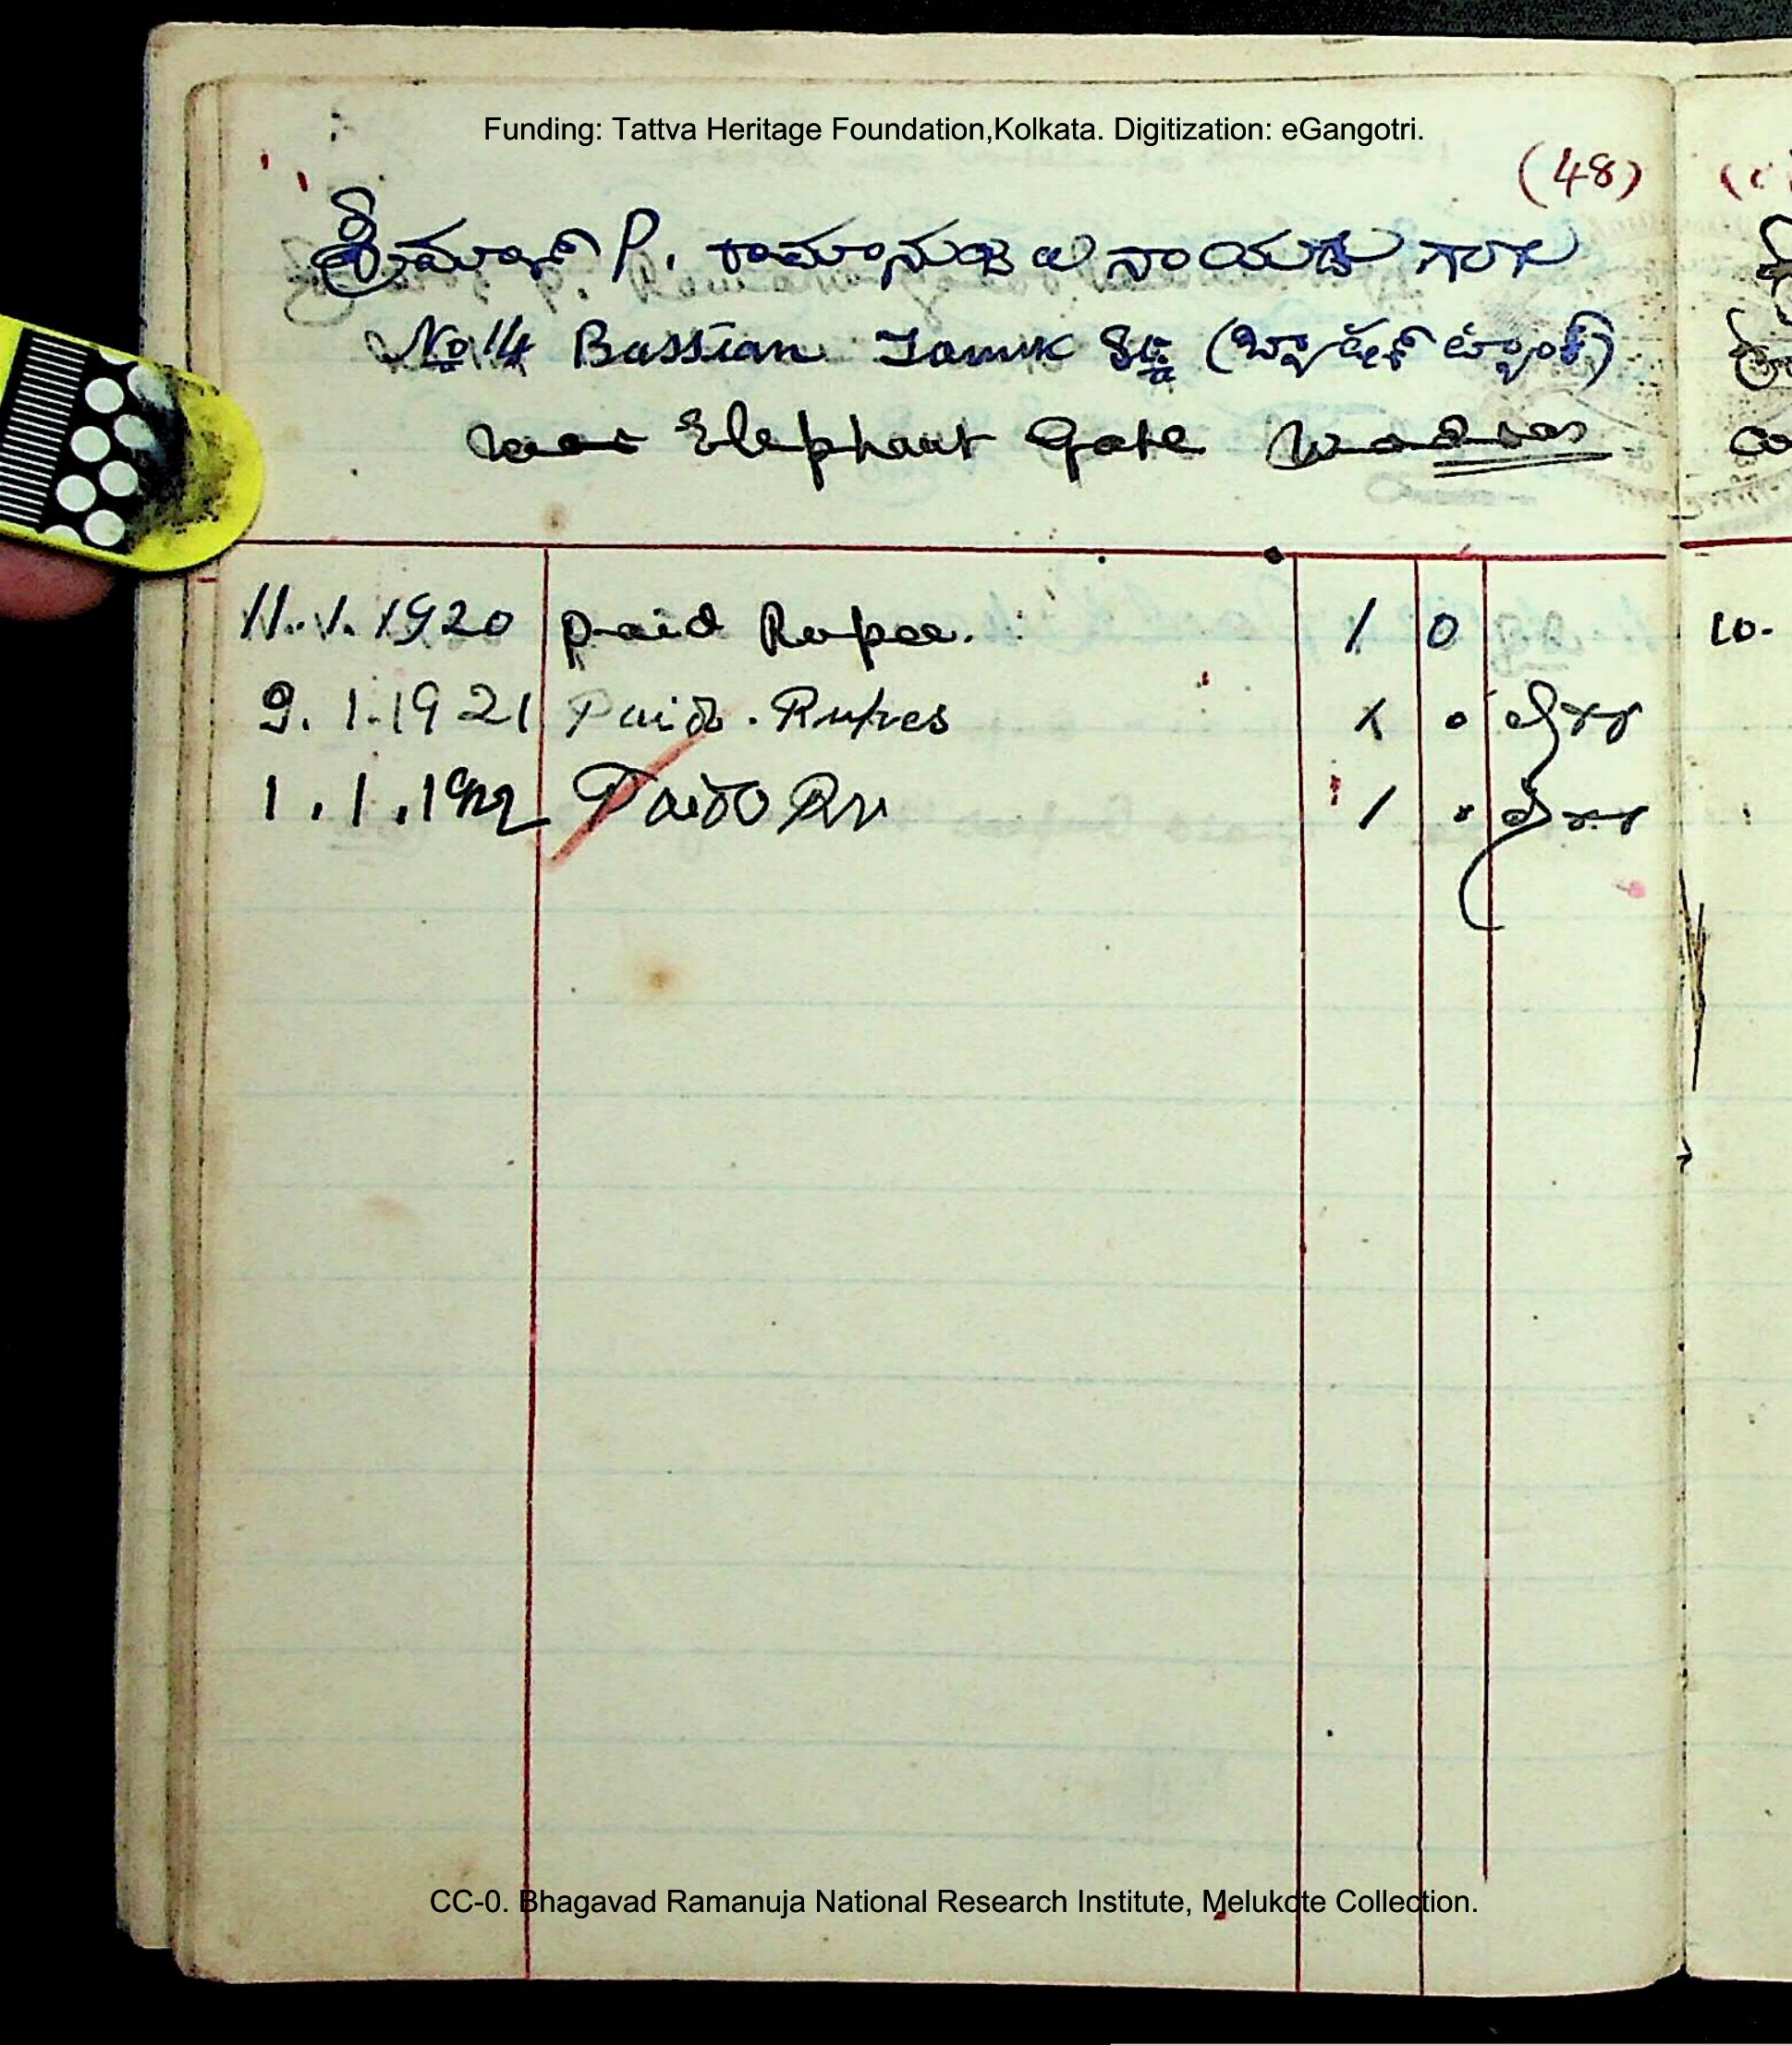 Funding: Tattva Heritage Foundation,Kolkata. Digitization: eGangotri.
(48)
ಶ್ರೀಮಾನ್ P. ರಾಮಾನುಜಲು ನಾಯುಡು ಗಾರು
No 14 Bassian Tank (ಬ್ಯಾಷನ್ ಟ್ಯಾಂಕ್)
near Elephant Gate Madras
11.1.1920 paid Rupee. 1 0
9.1.1921 Paid. Rupees 1 0
1.1.1922 Paid Rs 1 0
CC-0. Bhagavad Ramanuja National Research Institute, Melukote Collection.